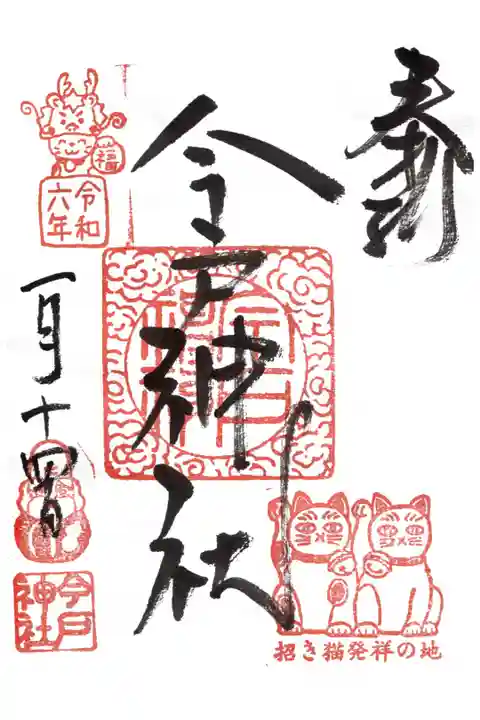 奉拝
今戸神社
福
令和
六年
一月十四日
今戸
神社
招き猫発祥の地